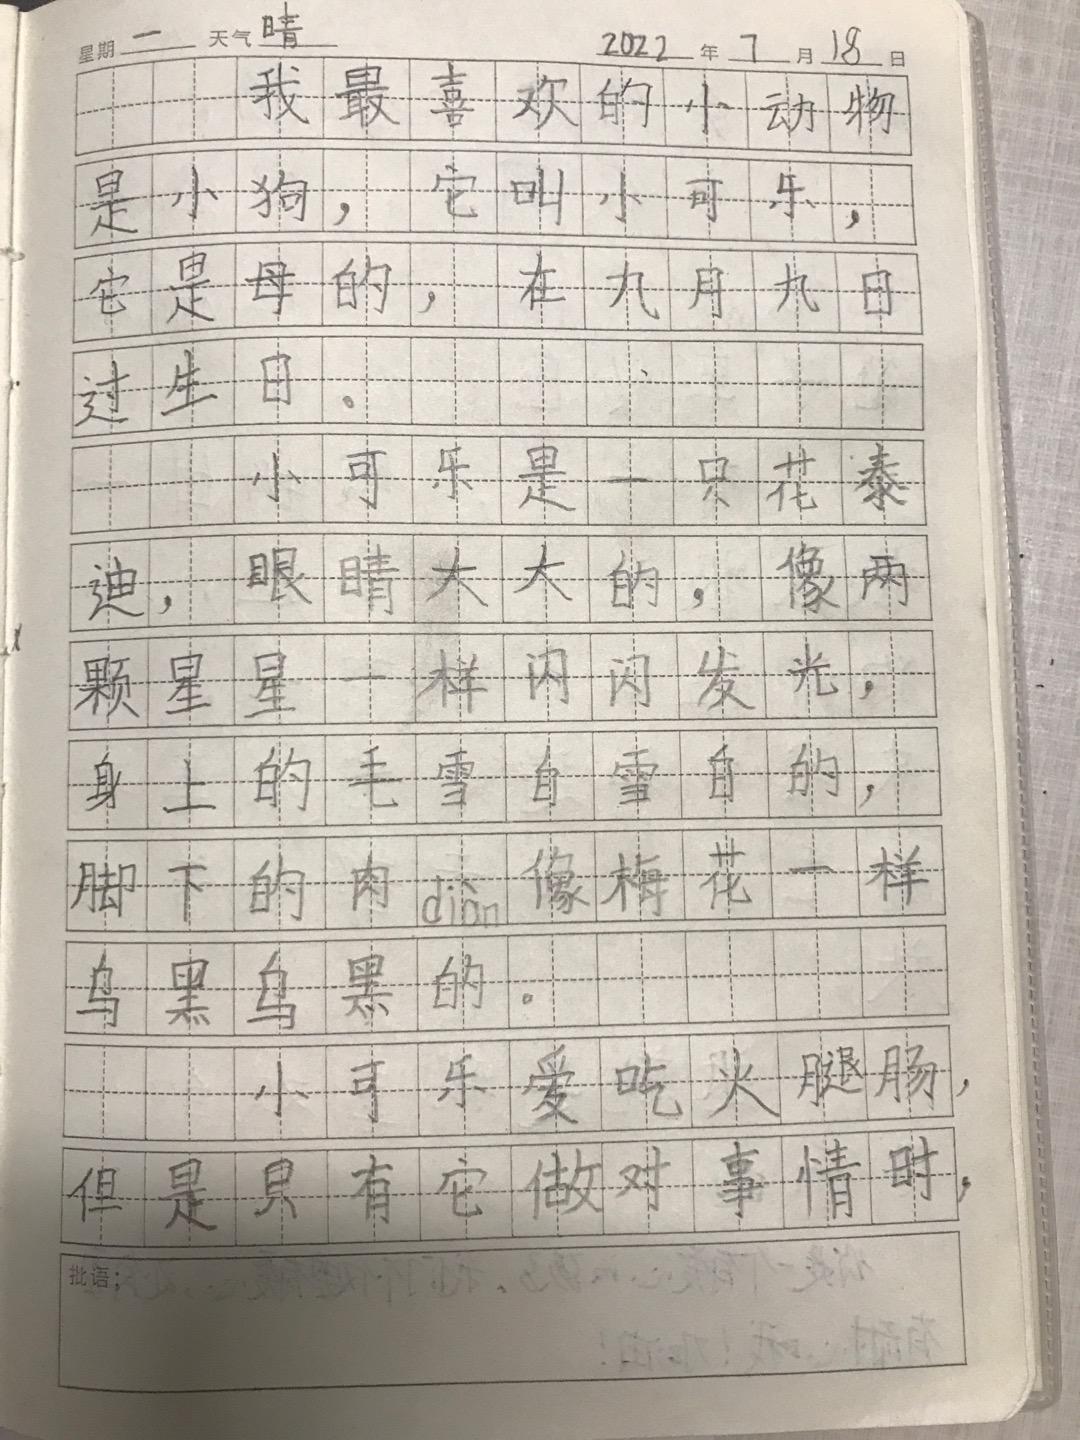 星期 二 天气 晴 2022 年 7 月 18 日
我最喜欢的小动物
是小狗，它叫小可乐，
它是母的，在九月九日
过生日。
小可乐是一只花泰
迪，眼睛大大的，像两
颗星星一样闪闪发光，
身上的毛雪自雪自的，
脚下的肉diàn像梅花一样
乌黑乌黑的。
小可乐爱吃火腿肠，
但是只有它做对事情时，
批语：